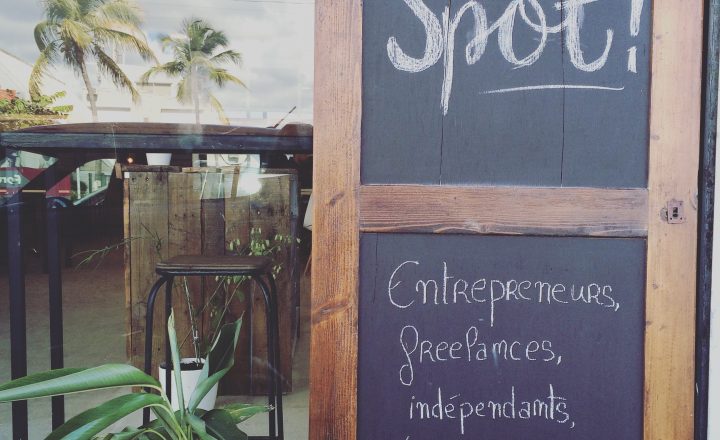 Spot!
Entrepreneurs,
freelances,
indépendants,